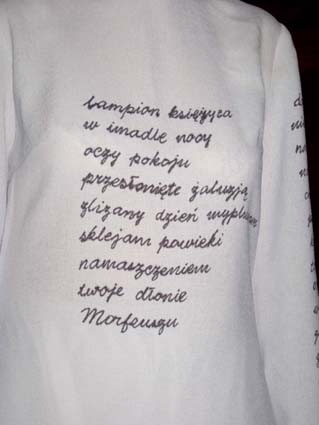 lampion księżyca
w imadle nocy
oczy pokoju
przesłonięte żaluzją
zlizany dzień
sklejam powieki
namaszczeniem
twoje dłonie
Morfeuszu